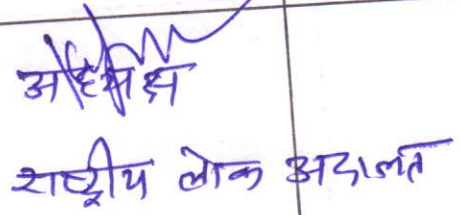 अधीक्षक
राष्ट्रीय लोक अदालत